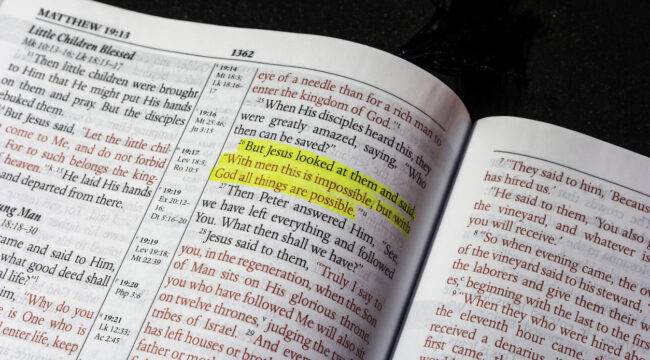 MATTHEW 19:13
1362
Little Children Blessed
Mk 10:13–16; Lk 18:15–17
13Then little children were brought
to Him that He might put His hands
on them and pray. But the disciples
rebuked them.
But Jesus said, "Let the little chil-
come to Me, and do not forbid
For to such belongs the king-
of heaven." k 15He laid His hands
and departed from there.
Young Man
18:18–30
came and said to Him,
what good deed shall
al life?"
"Why do you
is One who is
enter life, keep
19:14
Mt 18:3;
Lk 18:16–
17
19:16
Mt 25:46;
Jn 3:15
19:17
Lev 18:5;
Ro 10:5
19:19
Ex 20:12–
16;
Dt 5:16–20
19:19
Lev 19:18;
Mt 22:39
19:20
Php 3:6
19:21
Lk 12:33;
Ac 2:45
eye of a needle than for a rich man to
enter the kingdom of God."
25When His disciples heard this, they
were greatly amazed, saying, "Who
then can be saved?"
26But Jesus looked at them and said,
"With men this is impossible, but with
God all things are possible."
27Then Peter answered Him, "See,
we have left everything and followed
You. What then shall we have?"
28Jesus said to them, "Truly I say to
you, in the regeneration, when the Son
of Man sits on His glorious throne,
you who have followed Me will also sit
on twelve thrones, judging the twelve
tribes of Israel. 29And everyone
has left houses or broth
father or moth
7"They said to him, 'Because
has hired us.'
"He said to them, 'You also g
the vineyard, and whatever is
you will receive.'
8"So when evening came, the o
of the vineyard said to his steward,
the laborers and give them their w
beginning with the last to the first
9"When they who were hired abou
the eleventh hour came,
received a denarius.
first came, the